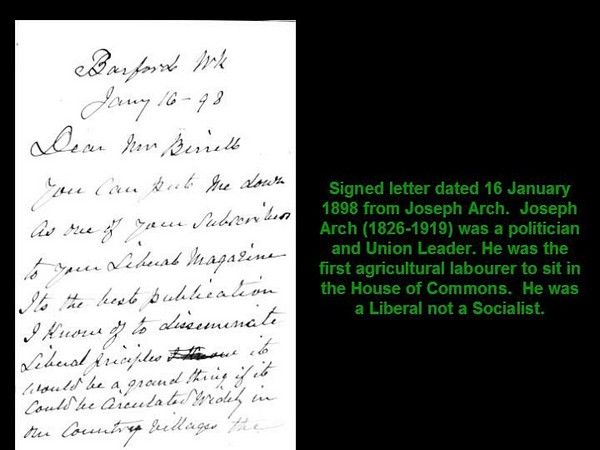 Barford Wk
Jany 16 - 98
Dear Mr Birrell
You Can put me down
As one of your Subscribers
to your Liberal Magazine
Its the best publication
I Know of to disseminate
Liberal priciples it
would be a grand thing if it
Could be Circulated Widely in
our Country Villages the
Signed letter dated 16 January
1898 from Joseph Arch. Joseph
Arch (1826-1919) was a politician
and Union Leader. He was the
first agricultural labourer to sit in
the House of Commons. He was
a Liberal not a Socialist.